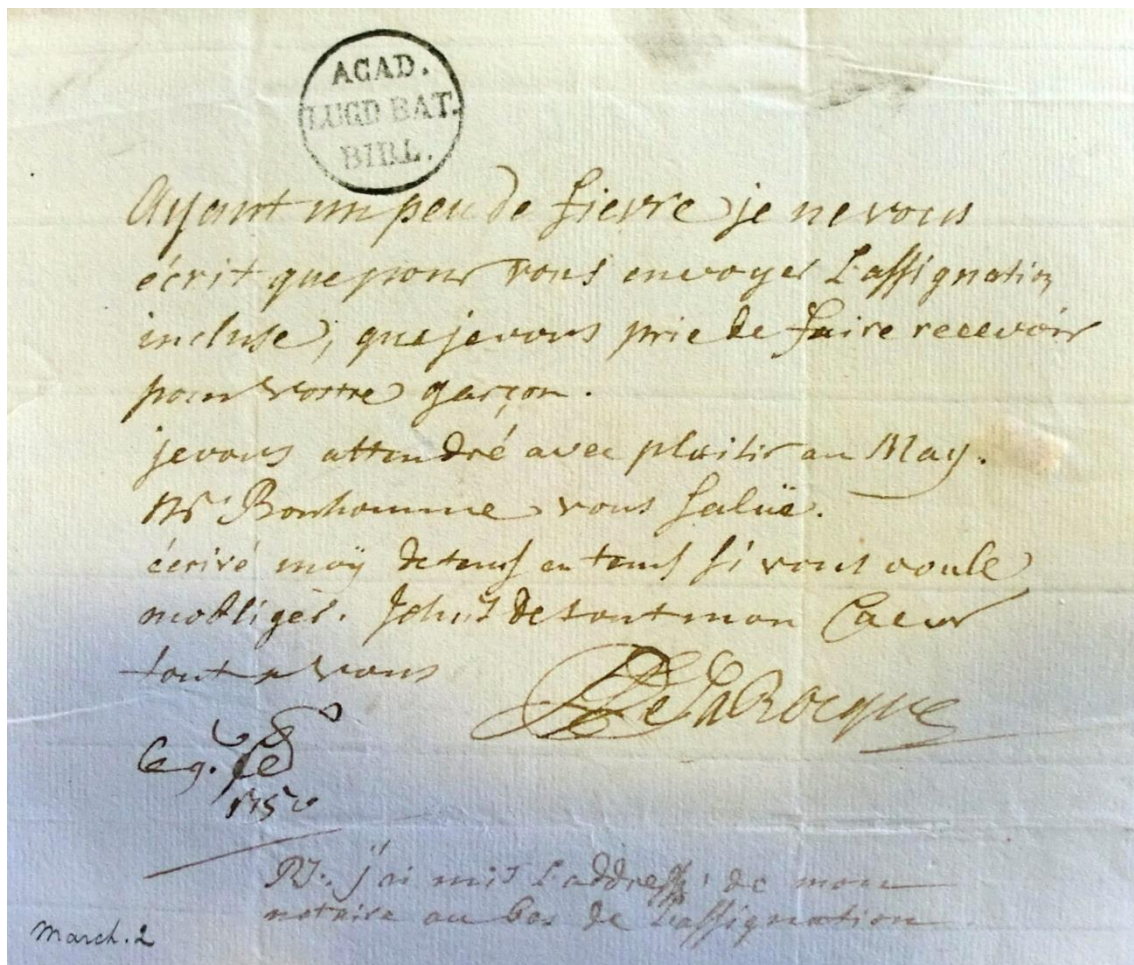 ACAD.
LUGD BAT.
BIBL.
Ayant un peu de fievre je ne vous
écrit que pour vous envoyer L'assignation
incluse, que je vous prie de faire recevoir
pour vostre garçon.
je vous attendré avec plaitir au May.
Mr Bonhomme vous salüe.
écrivé moÿ de tems en tems si vous voulé
mobliger. Je suis de tout mon Caeur
tout a vous
De La Rocque
Ce 9. fe
1756
PS: j'ai mis L'addresse de mon
notaire au bas de L'assignation
March. 2